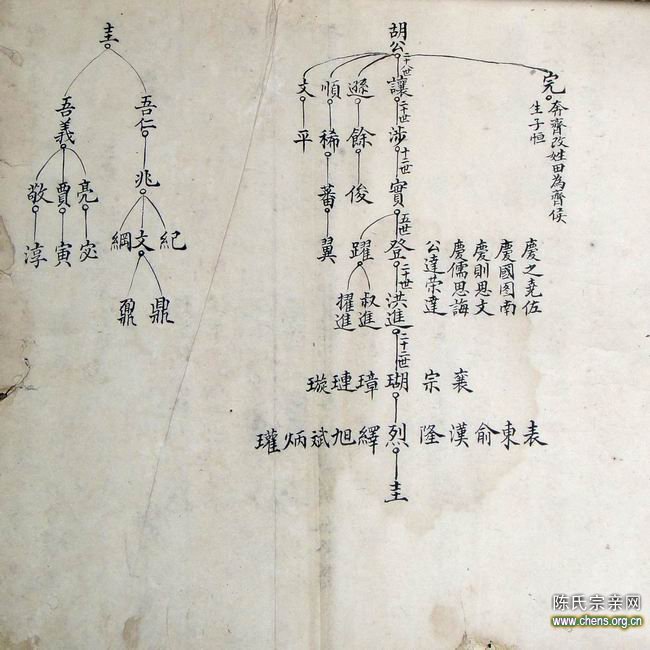 胡公
二十八世
完
奔齊改姓田為齊侯
生子恒
讓 遜 順 文
二十世
涉 餘 稀 平
十二世
實 俊 蕃
翼
五世
登 躍
二十世
洪進 叔進 擢進
二十二世
慶之堯佐
慶國图南
慶則思文
慶儒思誨
公達荣達
襄 宗 瑚 璋 璉 璇
表 東 俞 漢 隆 烈 繹 旭 斌 炳 瓘
圭
圭
吾仁 吾義
兆
亮 賈 敬
紀 文 綱
宓 寅 淳
鼎 鼐
陈氏宗亲网
www.chens.org.cn